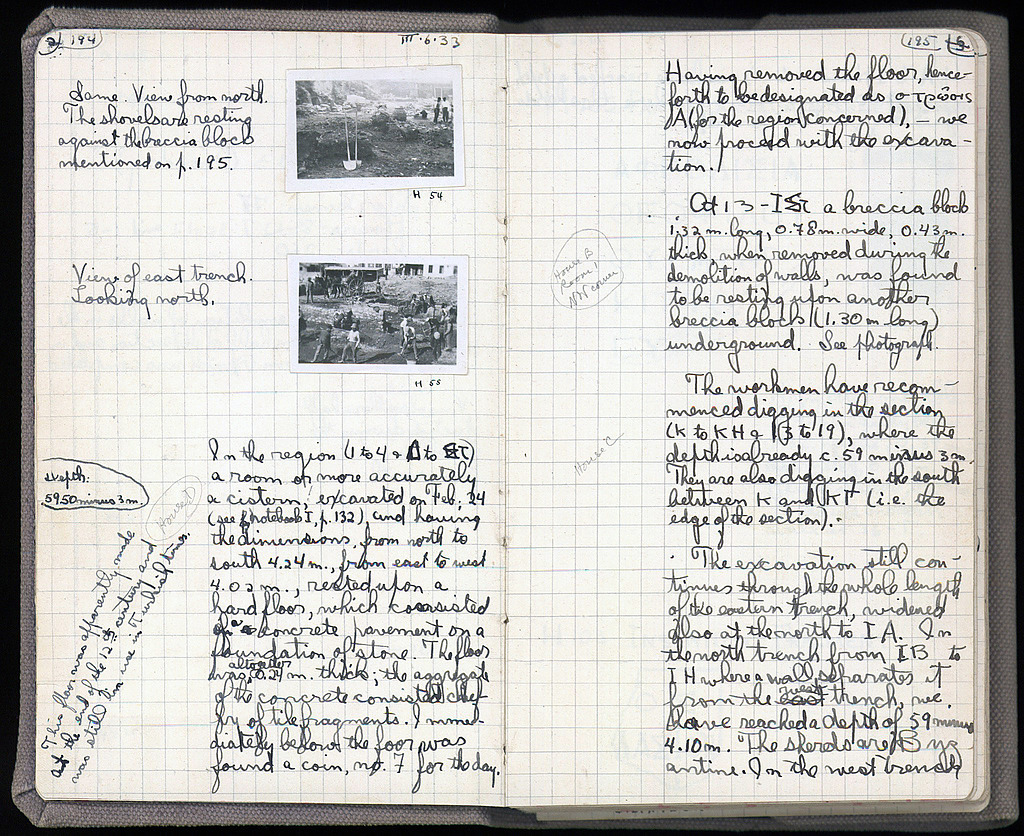 194
III·6·33
Same. View from north.
The shovels are resting
against the breccia block
mentioned on p. 195.
H 54
View of east trench.
Looking north.
H 55
Depth:
59.50 minus 3 m.
House
This floor was apparently made
at the end of the 12th century and
was still in use in Turkish times.
In the region (1 to 4 &
a room or more accurately
a cistern, excavated on Feb. 24
(see Notebook I, p. 132) and having
the dimensions, from north to
south 4.24 m., from east to west
4.02 m., rested upon a
hard floor, which consisted
of a concrete pavement on a
foundation of stone. The floor
altogether
was 0.24 m. thick; the aggregate
of the concrete consisted chief-
ly of tile fragments. Imme-
diately below the floor was
found a coin, no. 7 for the day.
195
Having removed the floor, hence-
forth to be designated as στρῶσις
A (for the region concerned), — we
now proceed with the excava-
tion.
At 13 - a breccia block
1.32 m. long, 0.78 m. wide, 0.43 m.
thick, when removed during the
demolition of walls, was found
to be resting upon another
breccia block (1.30 m. long)
underground. See photograph.
House B
Room 1
NW corner
The workmen have recom-
menced digging in the section
(K to KH & 13 to 19), where the
depth is already c. 59 minus 3 m.
They are also digging in the south
between K and KΓ (i.e. the
edge of the section).
House C
The excavation still con-
tinues through the whole length
of the eastern trench, widened
also at the north to IA. In
the north trench from IB to
IH where a wall separates it
west
from the east trench, we
have reached a depth of 59 minus
4.10 m. The sherds are Byz-
antine. In the west trench